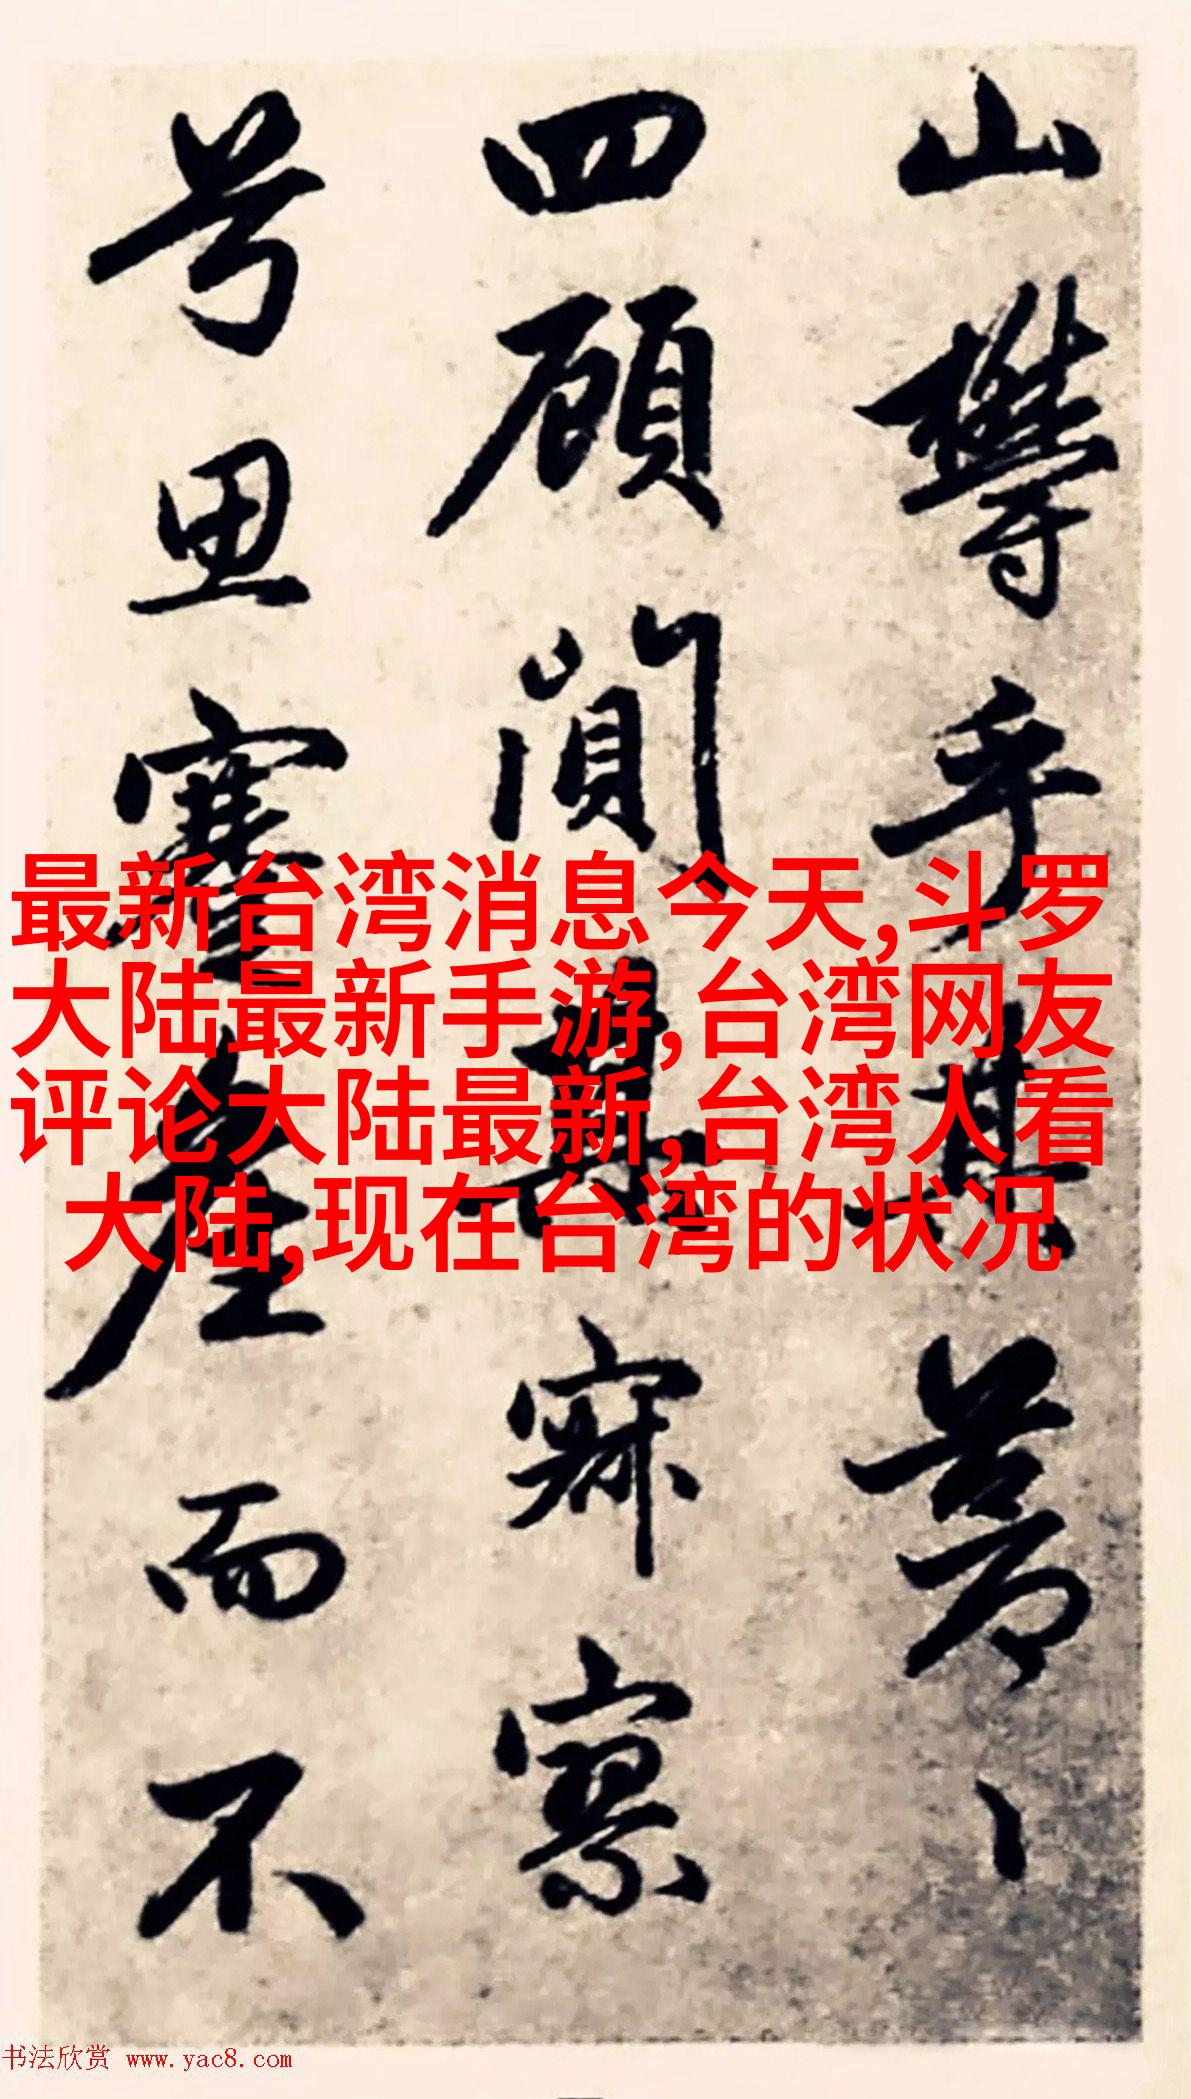 山欝乎其蒼〻
四顧闃其寂寥
兮思蹇產而不
最新台湾消息今天,斗罗
大陆最新手游,台湾网友
评论大陆最新,台湾人看
大陆,现在台湾的状况
书法欣赏 www.yac8.com